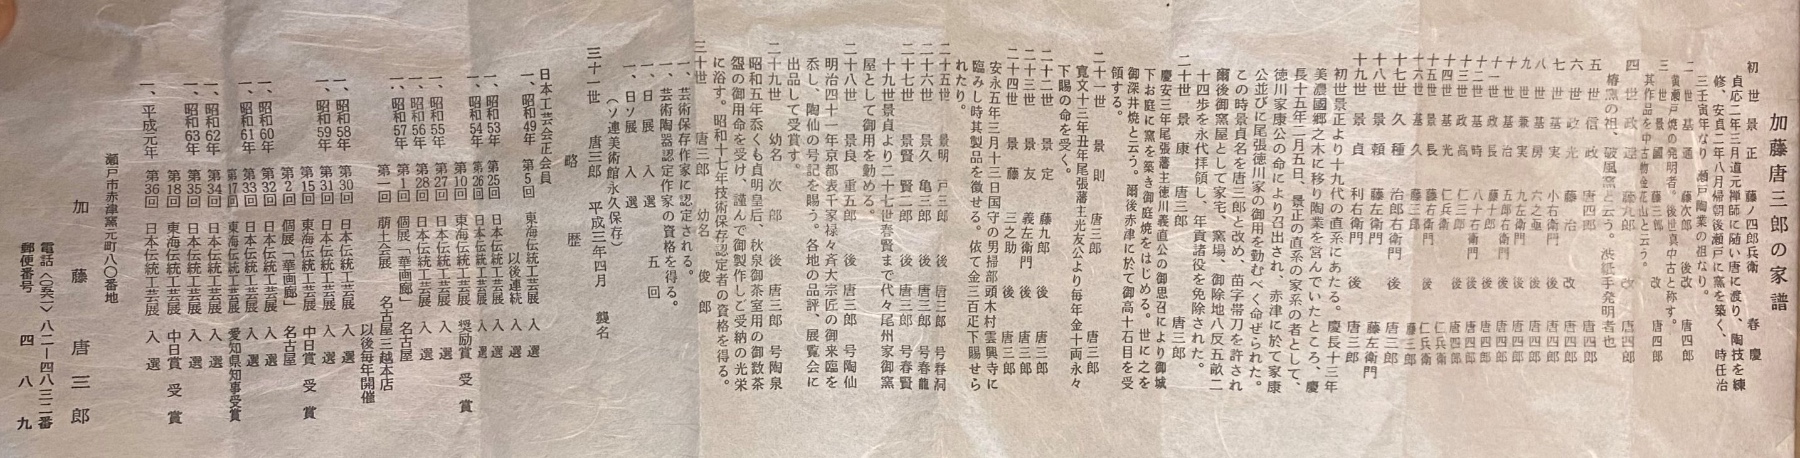 加藤唐三郎の家譜
初世 景正 藤ノ四郎兵衛 春慶
貞応二年三月道元禅師に随い唐に渡り、陶技を練
修、安貞二年八月帰朝後瀬戸に窯を築く、時任治
三壬寅年なり 瀬戸陶業の祖なり。
二世 基通 藤次郎 後改 唐四郎
黄瀬戸焼の発明者。後世真中古と称す。
三世 景國 藤三郎 改 唐四郎
其作品を中古物金花出と云う。
四世 政連 藤九郎 改 唐四郎
椿窯の祖、破風窯と云う。渋紙手発明者也
五世 政信 唐四郎
六世 政光 藤治 改 唐四郎
七世 基実 小右衛門 改 唐四郎
八世 基房 六之亟 後 唐四郎
九世 兼実 九左衛門 後 唐四郎
十世 基治 五郎右衛門 後 唐四郎
十一世 政長 藤十郎 後 唐四郎
十二世 基時 八十右衛門 後 唐四郎
十三世 政高 仁三郎 後 唐四郎
十四世 基光 仁兵衛 後 仁兵衛
十五世 景長 藤右衛門 後 仁兵衛
十六世 基久 藤三郎
十七世 久種 治郎右衛門 後 唐三郎
十八世 景頼 藤左衛門 後 藤左衛門
十九世 景貞 利右衛門 後 唐三郎
初世景正より十九代の直系にあたる。慶長十三年
美濃國郷之木に移り陶業を営んでいたところ、慶
長十五年二月五日、景正の直系の家系の者として、
徳川家康公の命により召出され、赤津に於て家康
公並びに尾張徳川家の御用を勤むべく命ぜられた。
この時景貞名を唐三郎と改め、苗字帯刀を許され
爾後御窯屋として家宅、窯場、御除地八反五畝二
十四歩を永代拝領し、年貢諸役を免除された。
二十世 景康 唐三郎 唐三郎
慶安三年尾張藩主徳川義直公の御思召により御城
下お庭に窯を築き御庭焼をはじめる。世に之を
御深井焼と云う。爾後赤津に於て御高十石目を受
領する。
二十一世 景則 唐三郎 唐三郎
寛文十三年丑年尾張藩主光友公より毎年金十両永々
下賜の命を受く。
二十二世 景定 藤九郎 後 唐三郎
二十三世 景友 義左衛門 後 唐三郎
二十四世 景藤 三之助 後 唐三郎
安永五年三月十三日国守の男掃部頭木村雲興寺に
臨みし時其製品を徴せる。依て金三百疋下賜せら
れたり。
二十五世 景明 戸三郎 後 唐三郎 号春洞
二十六世 景久 亀三郎 後 唐三郎 号春龍
二十七世 景賢 賢二郎 後 唐三郎 号春賢
十九世景貞より二十七世春賢まで代々尾州家御窯
屋として御用を勤める。
二十八世 景良 重五郎 後 唐三郎 号陶仙
明治四十一年京都表千家禄々斉大宗匠の御来臨を
忝し、陶仙の号記を賜う。各地の品評、展覧会に
出品して受賞す。
二十九世 幼名 次郎 後 唐三郎 号陶泉
昭和五年忝くも貞明皇后、秋泉御茶室用の御数茶
盌の御用命を受け、謹んで御製作しご受納の光栄
に浴す。昭和十七年技術保存認定者の資格を得る。
三十世 唐三郎 幼名 俊郎
一、芸術保存作家に認定される。
一、芸術陶器認定作家の資格を得る。
一、日展 入選 五回
一、日ソ展 入選
(ソ連美術館永久保存)
三十一世 唐三郎 平成三年四月 襲名
略歴
日本工芸会正会員
一、昭和49年 第5回 東海伝統工芸展 入選
以後連続 入選
一、昭和53年 第25回 日本伝統工芸展 入選
一、昭和54年 第26回 日本伝統工芸展 入選
第10回 東海伝統工芸展 奨励賞 受賞
一、昭和55年 第27回 日本伝統工芸展 入選
一、昭和56年 第28回 日本伝統工芸展 入選
一、昭和57年 第1回 個展「華画廊」 名古屋
第一回 萠土会展 名古屋三越本店
以後毎年開催
一、昭和58年 第30回 日本伝統工芸展 入選
一、昭和59年 第31回 日本伝統工芸展 入選
第15回 東海伝統工芸展 中日賞 受賞
第2回 個展「華画廊」 名古屋
一、昭和60年 第32回 日本伝統工芸展 入選
一、昭和61年 第33回 日本伝統工芸展 入選
第17回 東海伝統工芸展 愛知県知事受賞
一、昭和62年 第34回 日本伝統工芸展 入選
一、昭和63年 第35回 日本伝統工芸展 入選
第18回 東海伝統工芸展 中日賞 受賞
一、平成元年 第36回 日本伝統工芸展 入選
瀬戸市赤津窯元町八〇番地
加藤唐三郎
電話〈〇五六一〉八二―四八三二番
郵便番号 四八九